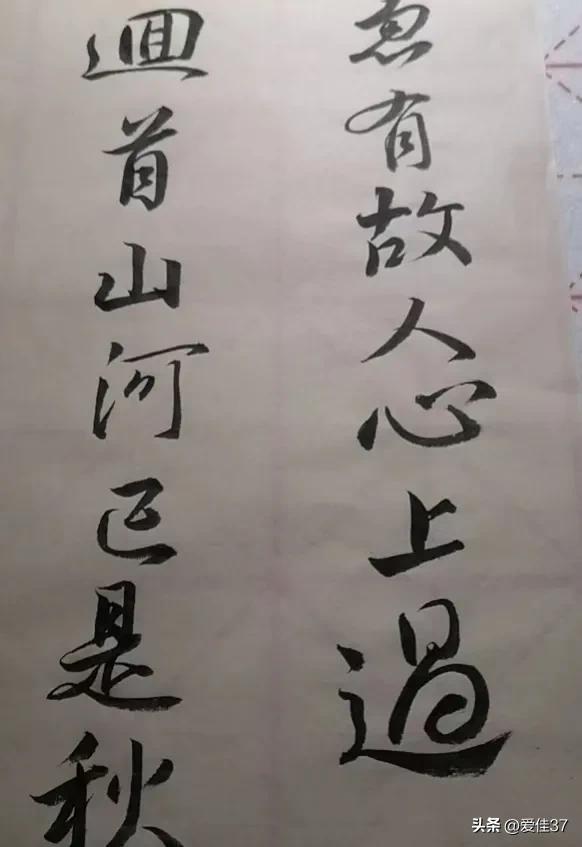 忽有故人心上過
迴首山河已是秋
头条 @爱佳37